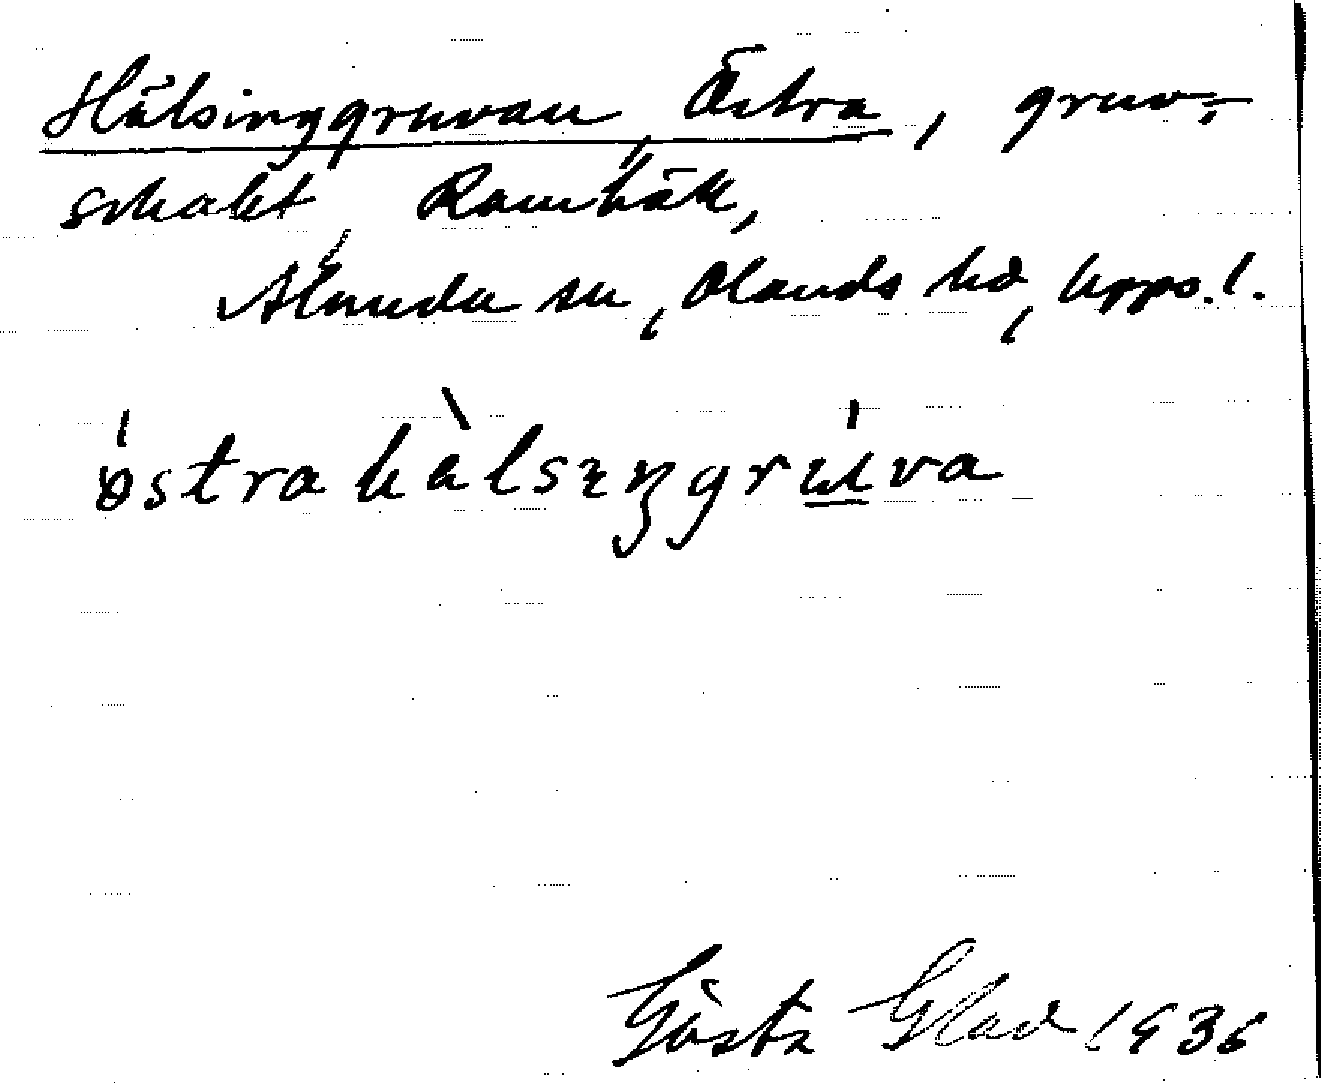 Hälsinggruvan, Östra, gruv-
schakt, Ramhäll,
Alunda sn, Olands hd, Upps. l.
östrahälsɪŋgruva
Gösta Glad 1936